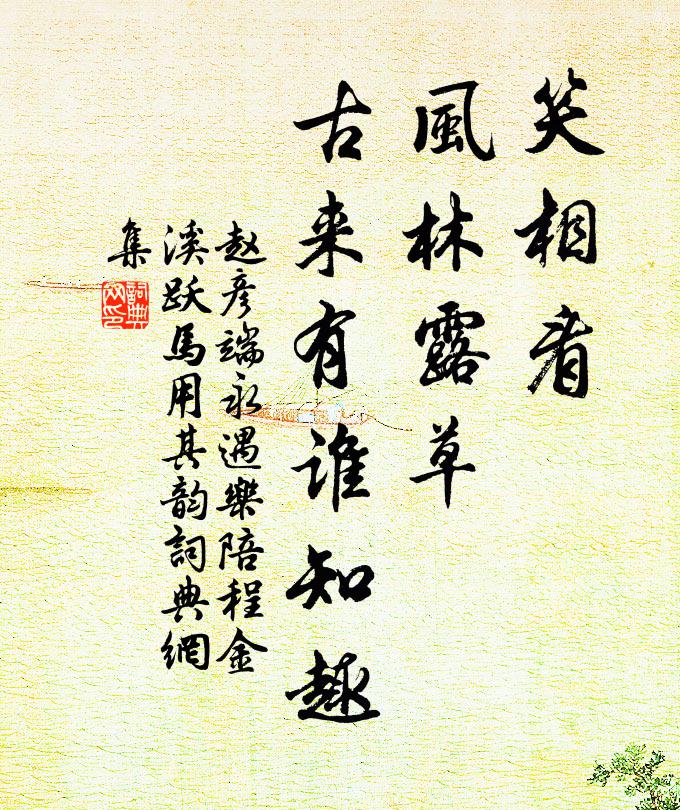 笑相看
風林露草
古来有谁知趣
赵彦端永遇樂陪程金
溪跃馬用其韵詞典網
集
詞典
网印